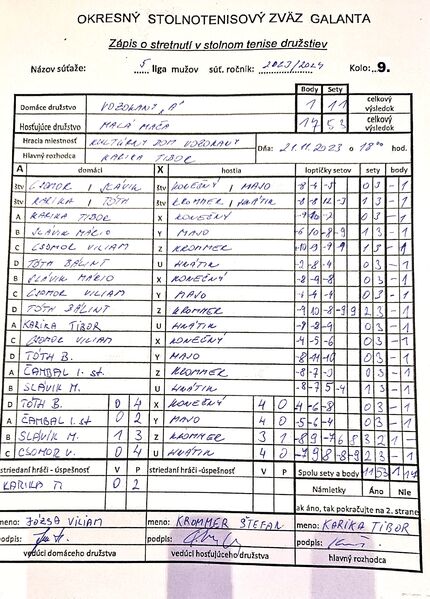 OKRESNÝ STOLNOTENISOVÝ ZVÄZ GALANTA
Zápis o stretnutí v stolnom tenise družstiev
Názov súťaže: 5 liga mužov súť. ročník: 2023/2024 Kolo: 9.
Body Sety
Domáce družstvo VOZOKANY "A" 1 11 celkový výsledok
Hosťujúce družstvo MALÁ MAČA 17 53 celkový výsledok
Hracia miestnosť KULTÚRNY DOM VOZOKANY Dňa: 21.11.2023 o 18°° hod.
Hlavný rozhodca KARIKA TIBOR
A domáci X hostia loptičky setov sety body
štv CSOMOR / SLÁVIK štv KONEČNÝ / MAJO -8 -4 -3 0 3 - 1
štv KARIKA / TÓTH štv KROMMER / HNÁTIK 1 3 - 1
A KARIKA TIBOR X KONEČNÝ -9 -10 -2 0 3 - 1
B SLÁVIK MÁRIO Y MAJO -6 10 -8 -9 1 3 - 1
C CSOMOR VILIAM Z KROMMER 1 3 - 1
D TÓTH BÁLINT U HNÁTIK -2 -8 -4 0 3 - 1
B SLÁVIK MÁRIO X KONEČNÝ -8 -9 -8 0 3 - 1
C CSOMOR VILIAM Y MAJO -4 -4 0 3 - 1
D TÓTH BÁLINT Z KROMMER -9 10 -8 -9 9 2 3 - 1
A KARIKA TIBOR U HNÁTIK -9 -8 -9 0 3 - 1
C CSOMOR VILIAM X KONEČNÝ -4 -5 -6 0 3 - 1
D TÓTH B. Y MAJO -8 -11 -10 0 3 - 1
A ČAMBAL I. st Z KROMMER -8 -7 -3 0 3 - 1
B SLÁVIK M. U HNÁTIK -8 -7 5 -4 1 3 - 1
D TÓTH B. 0 4 X KONEČNÝ 4 0 -4 -6 -8 0 3 - 1
A ČAMBAL I. st 0 2 Y MAJO 4 0 -5 -6 -4 0 3 - 1
B SLÁVIK M. 1 3 Z KROMMER 3 1 -8 9 -7 6 8 3 2 1 -
C CSOMOR V. 0 4 U HNÁTIK 4 0 -7 9 8 -8 -9 2 3 - 1
striedaní hráči - úspešnosť V P striedaní hráči - úspešnosť V P Spolu sety a body 11 53 1 17
KARIKA T. 0 2 Námietky Áno Nie
ak áno, tak pokračujte na 2. strane
meno: JÓZSA VILIAM meno: KROMMER ŠTEFAN meno: KARIKA TIBOR
podpis: podpis: podpis:
vedúci domáceho družstva vedúci hosťujúceho družstva hlavný rozhodca